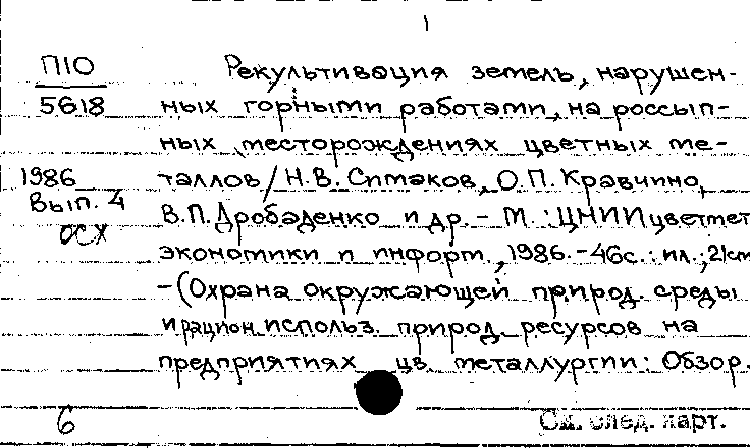 1
П10
5618
1986
Вып. 4
ОСХ
Рекультивация земель, нарушен-
ных горными работами, на россып-
ных месторождениях цветных ме-
таллов / Н.В. Симаков, О.П. Кравчино,
В.П. Дробаденко и др. - М.: ЦНИИцветмет
экономики и информ., 1986. - 46с.: ил.; 21см
- (Охрана окружающей природ. среды
и рацион. использ. природ. ресурсов на
предприятиях цв. металлургии: Обзор.
6
См. след. карт.